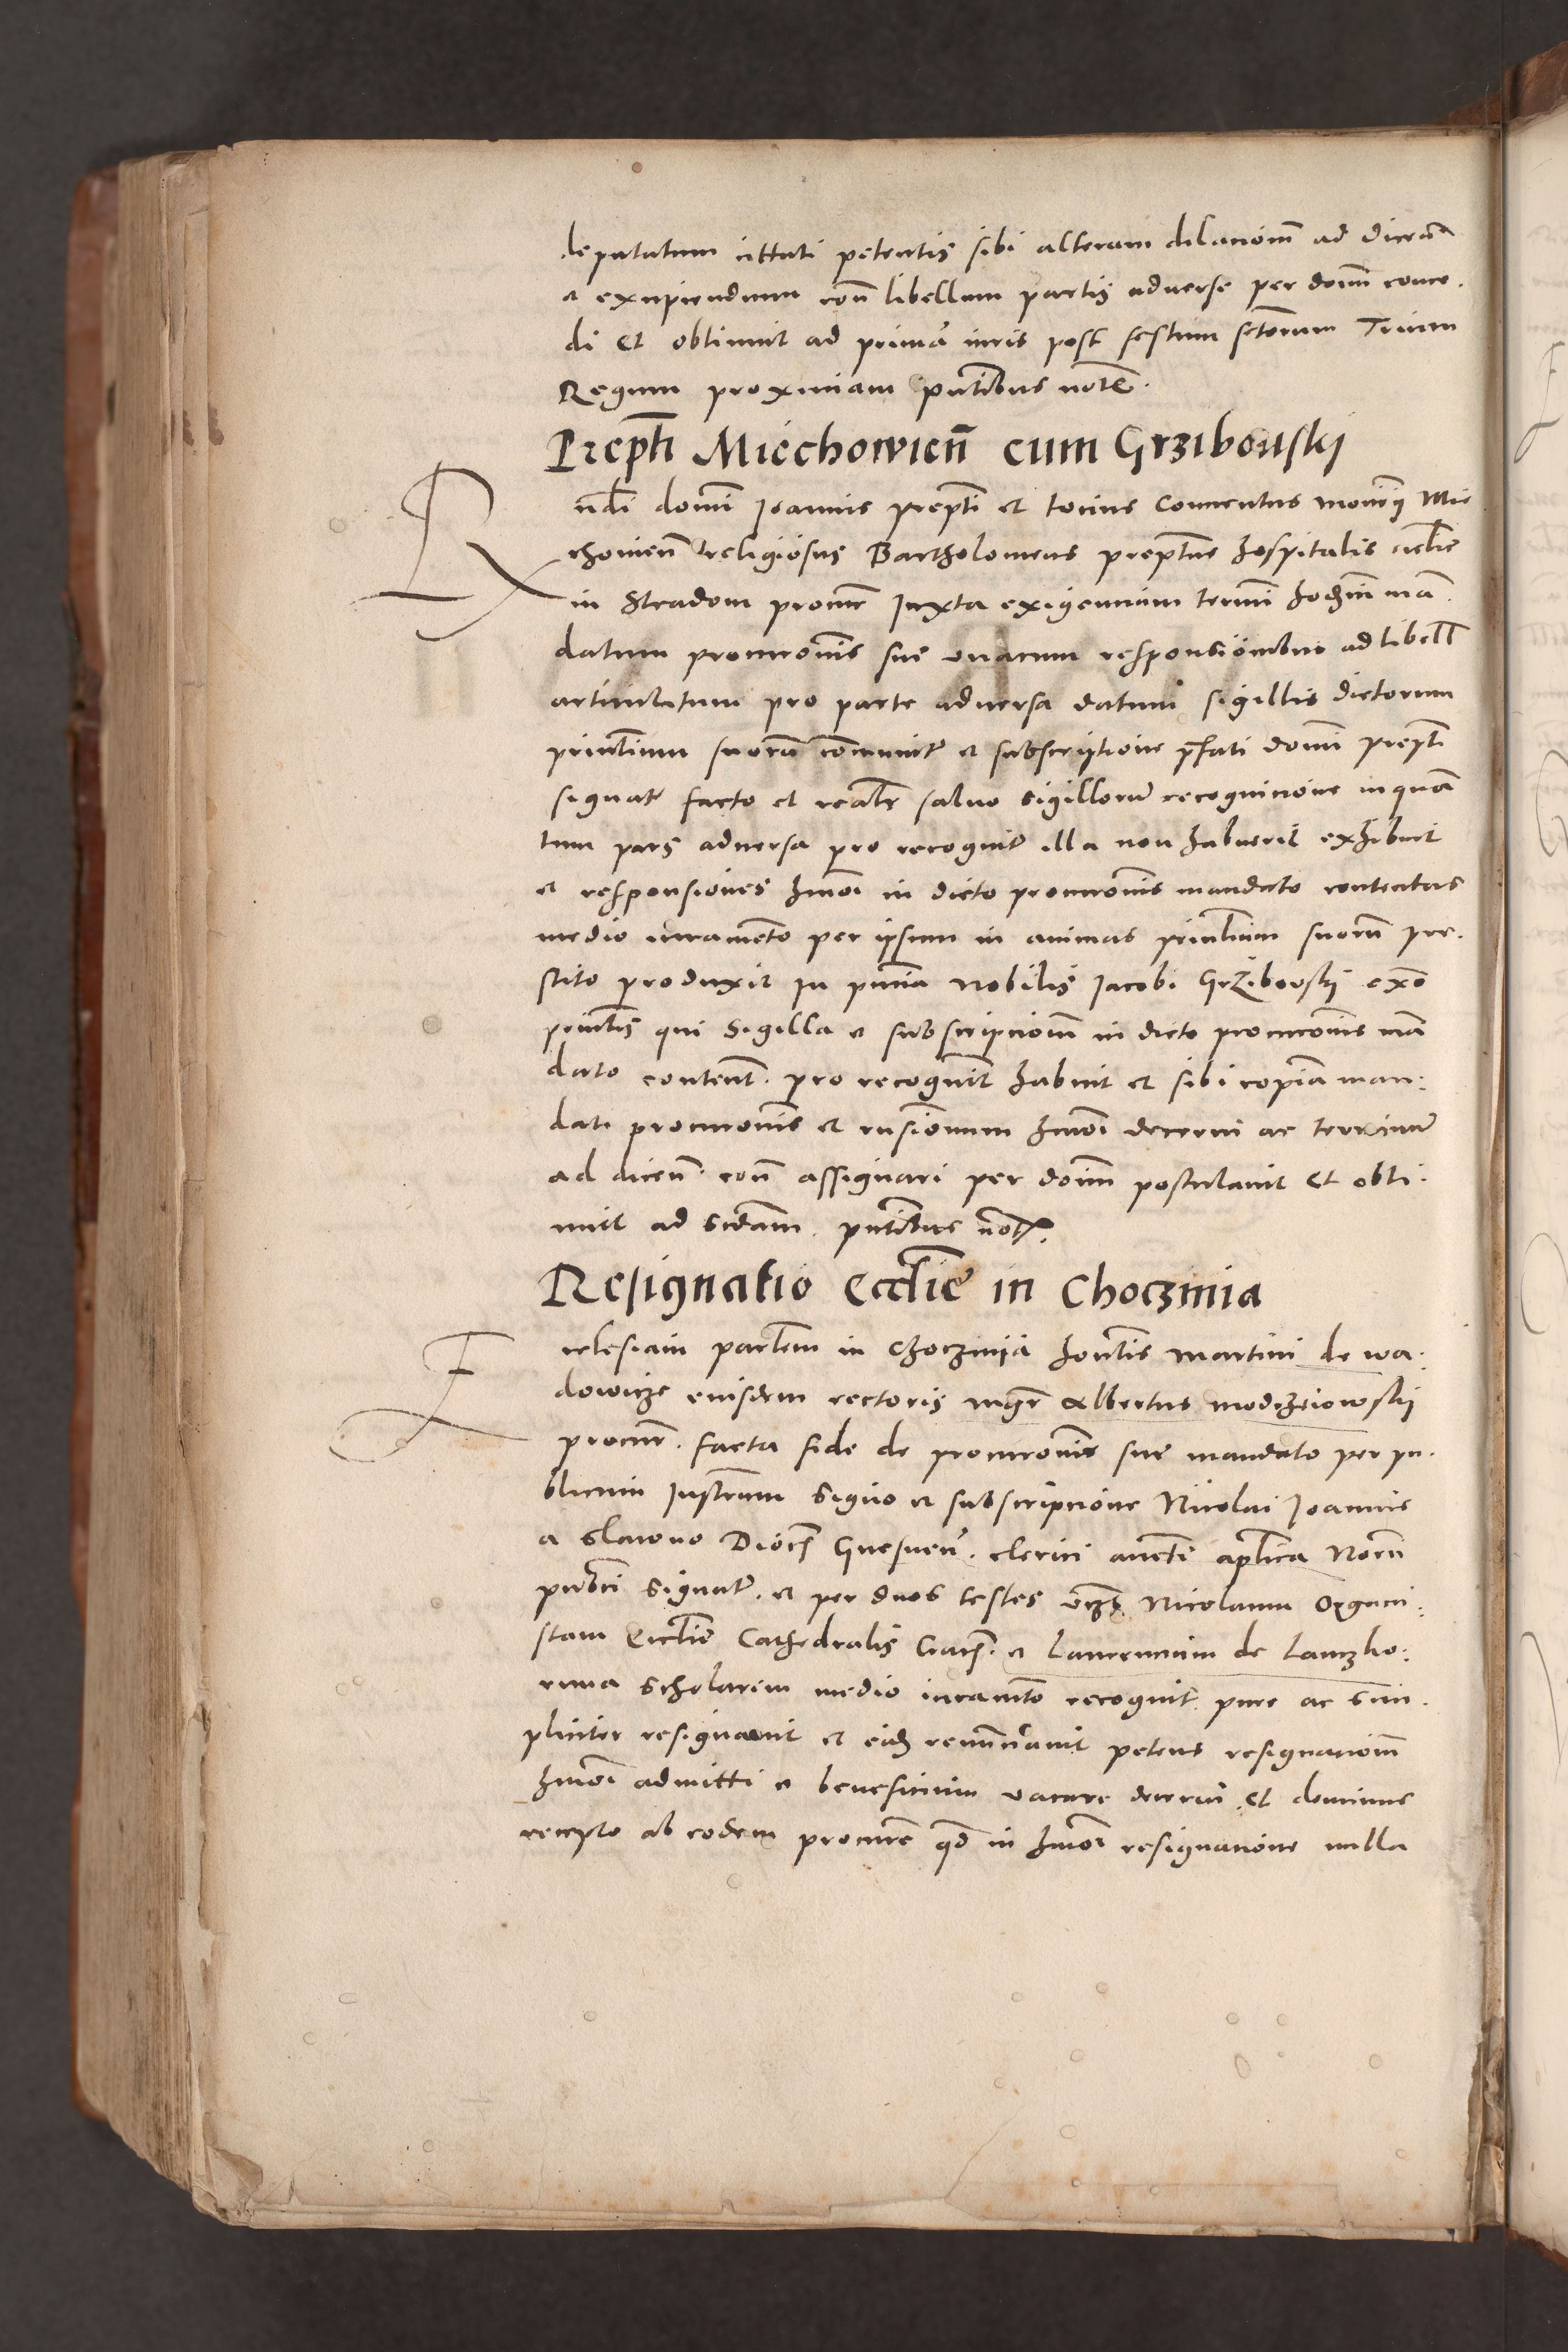 deputatum cittati petentis sibi alteram dilacionem ad dicendum
et excipiendum con libellum partis adverse per domin conce.
di et obtinuit ad primam iuris post festum sctorum Trium
Regum proximam pntibus notis.
Prepti Miechowien cum Grzibowski
Rndi domini Joannis prepti et tocius Conventus monrii Mie
chovien religiosus Bartholomeus preptus hospitalis
in Stradom procur Juxta exigenciam termini hodierni man
datum procuronis sue unacum responsionibus ad libell
articulatum pro parte adversa datum sigillis dictorum
principalium suorum communit et subscriptione prfati domini prepti
signat facto et realr salvo sigillorum recognicione inquan
tum pars adversa pro recognit illa non habuerit exhibuit
et responsiones hmoi in dicto procuronis mandato contentas
medio iuramento per ipsum in animas principalium suorum pre.
stito produxit in pncia Nobilis Jacobi Grzibowski exo
principalis qui Sigilla et subscripcionem in dicto procuronis man
dato content. pro recognit habuit et sibi copiam man:
dati procuronis et rnsionum hmoi decerni ac terminum
ad dicen con assignari per domin postulavit et obti.
nuit ad sctdam. pntibus notis.
Resignatio Ecclie in Choczinia
Ecclesiam parlem in Choczinia honbilis Martini de wa.
dowicze eiusdem rectoris mgr Albertus modrzeiowski
procur. facta fide de procuronis sue mandato per pu.
blicum Instrum signo et subscripcione Nicolai Joannis
a Slawno Dioc Gnesnen. clerici aucte aplica Norii
publici signat. et per duos testes Nicolaum Organi:
stam Ecclie Cathedralis Crac. et Laurencium de Lanczko:
runa scholarem medio iuramto recognit pure ac sim.
pliciter resignavit et eidem renunciavit petens resignacionem
hmoi admitti et beneficium vacare decerni et dominus
recepto ab eodem procure qd in hmoi resignacione nulla